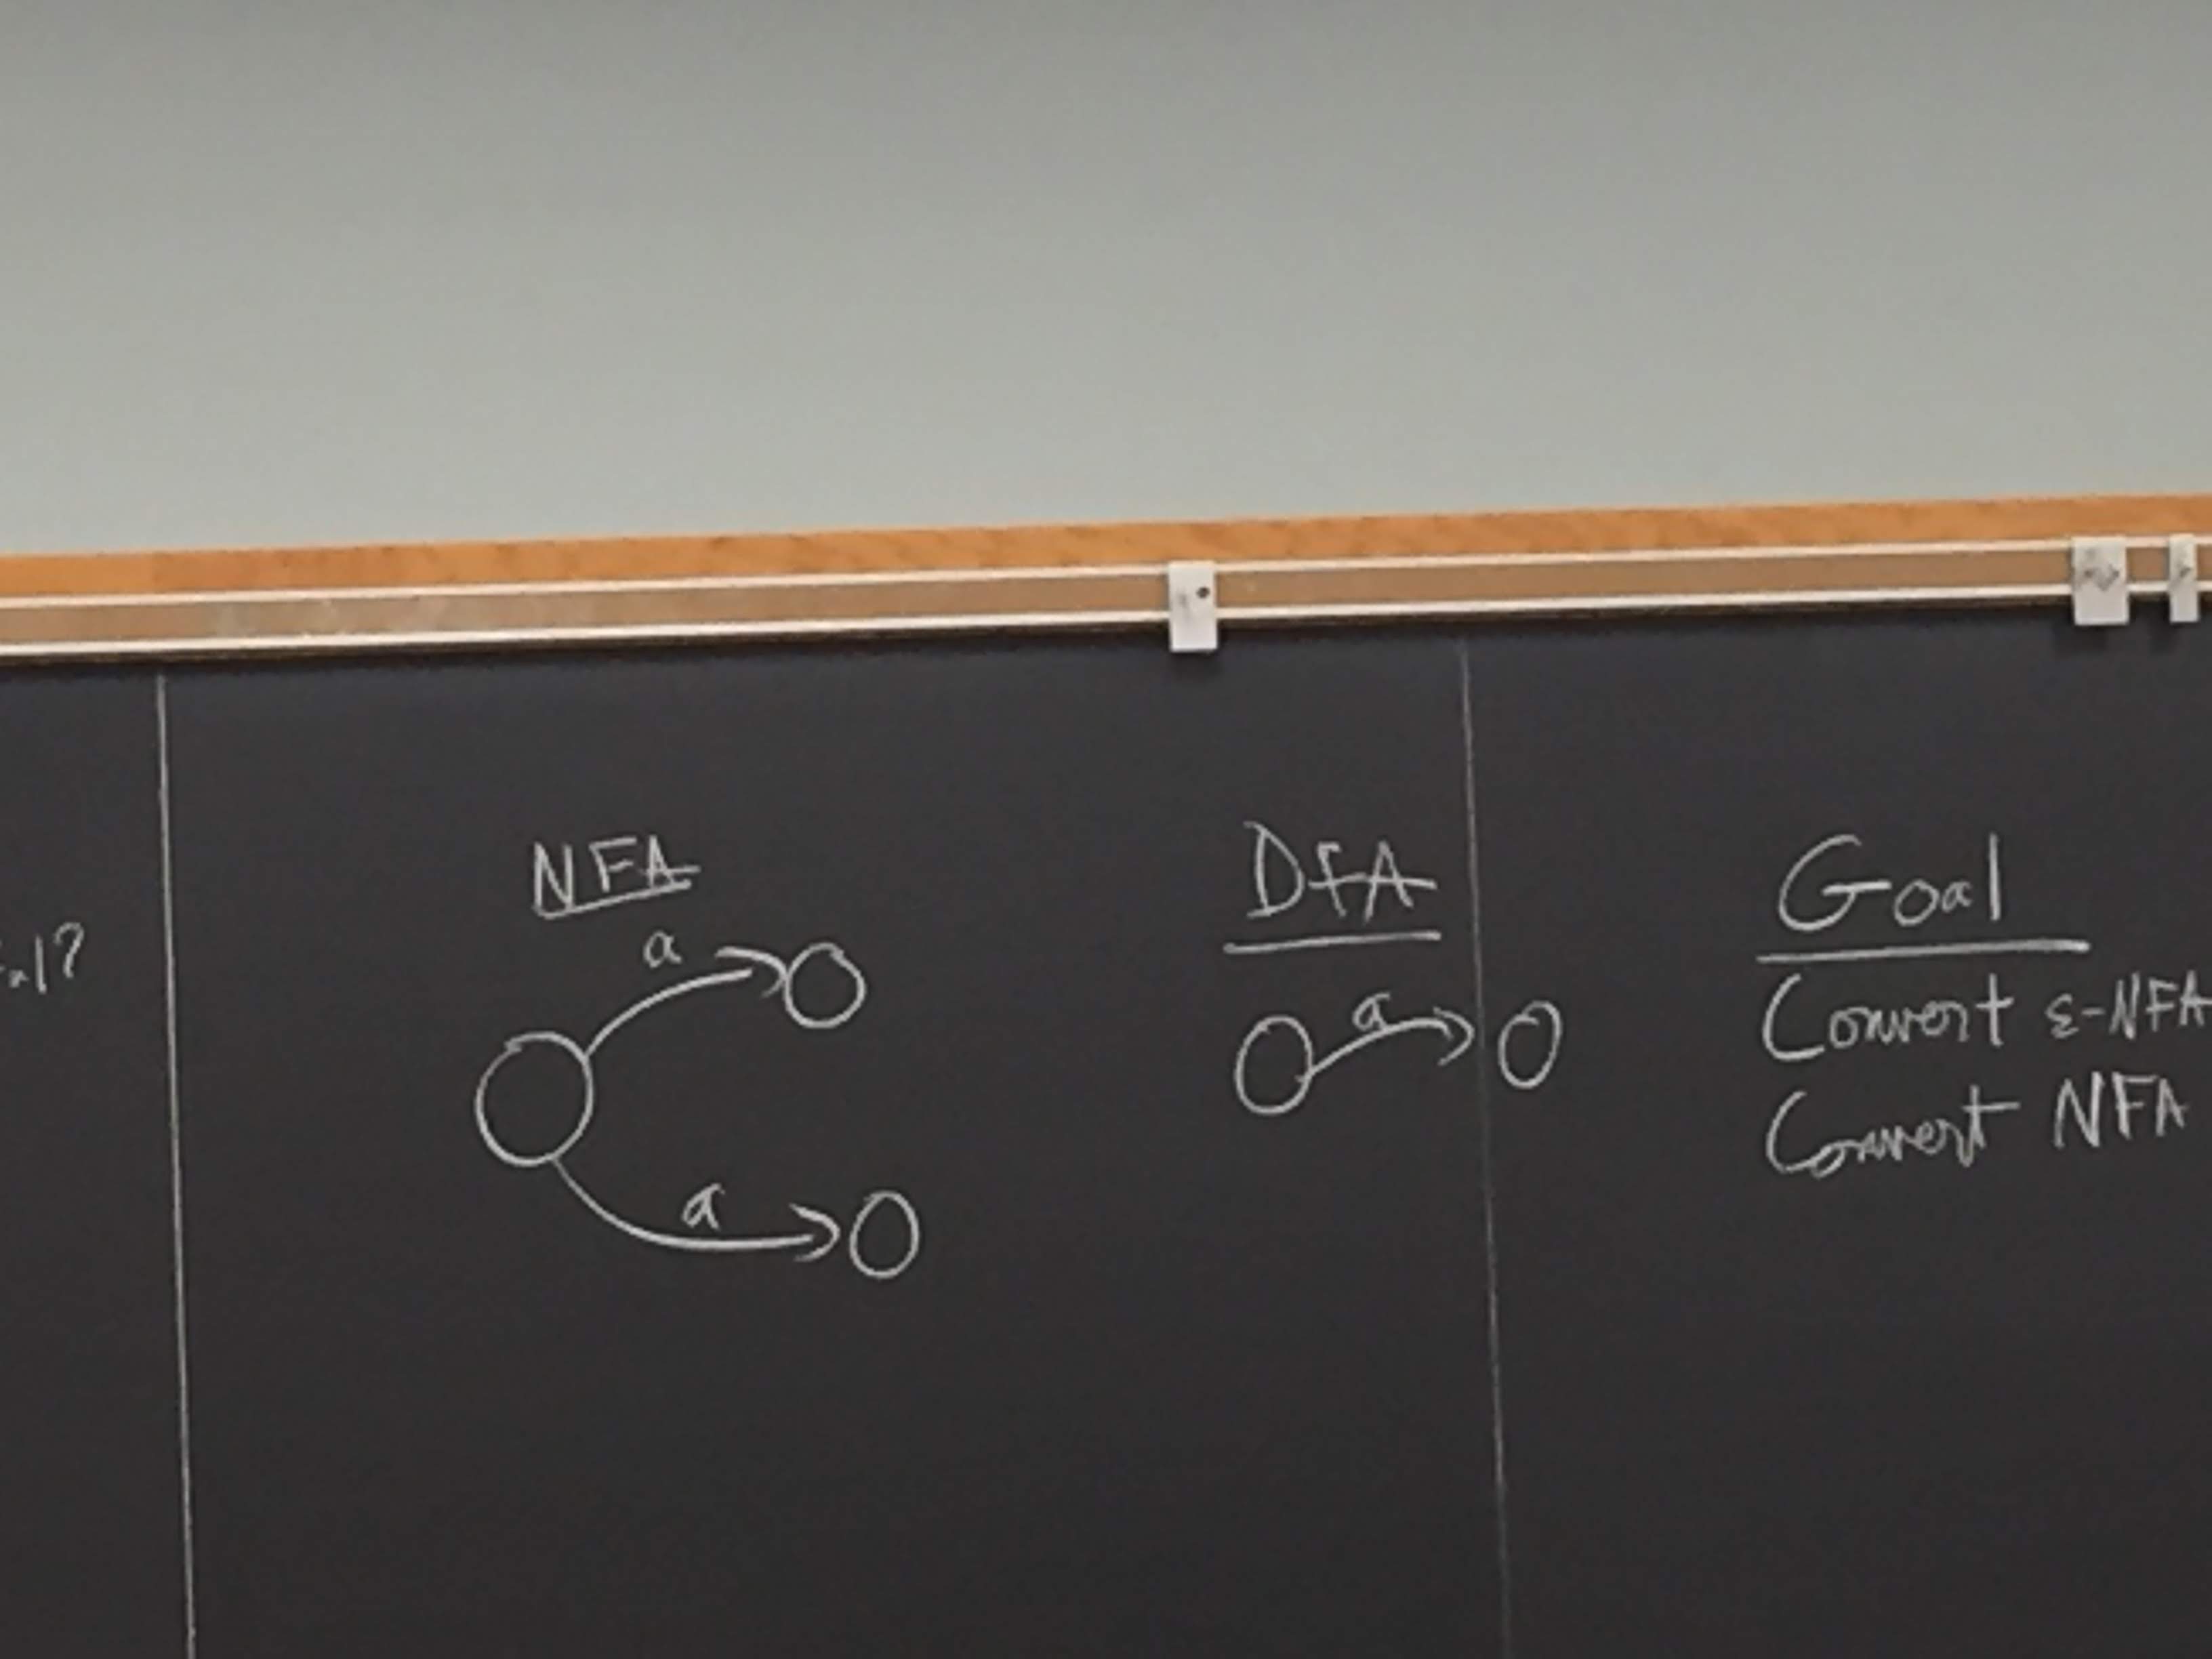 NFA
a
a
DFA
a
Goal
Convert ε-NFA
Convert NFA